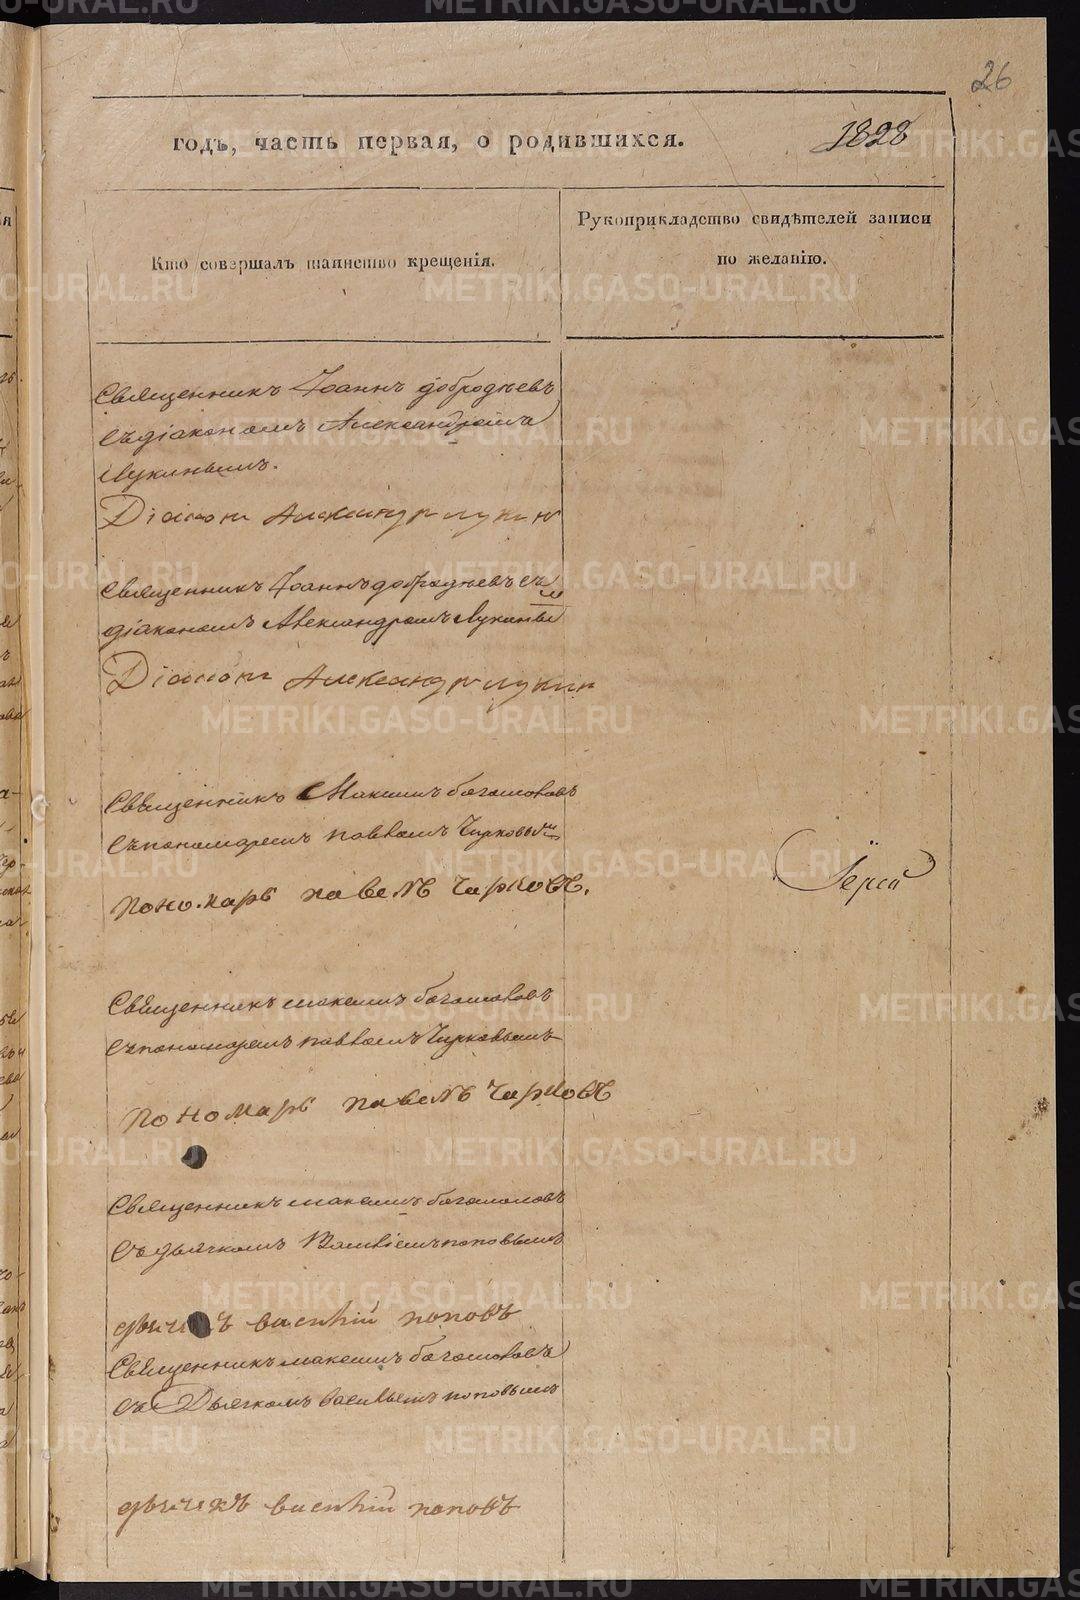 26
годъ, часть первая, о родившихся. 1828
Кто совершалъ таинство крещенія.
Рукоприкладство свидѣтелей записи
по желанію.
Священникъ Іоаннъ добродѣевъ
съ діакономъ Александромъ
Лукинымъ.
Діаконъ Александръ лукинъ
Священникъ Іоаннъ добродѣевъ съ
діакономъ Александромъ Лукинымъ
Діаконъ Александръ лукин
Священникъ Максимъ богомоловъ
съ пономаремъ павломъ Чирковымъ
пономарь павелъ чирковъ.
Іерей
Священникъ максимъ богомоловъ
съ пономаремъ павломъ Чирковымъ
пономарь павелъ чирковъ
Священникъ максимъ богомоловъ
съ дьячкомъ Василіемъ поповымъ
дьячекъ василій поповъ
Священникъ максимъ богомоловъ
съ Дьячкомъ василіемъ поповымъ
дьячекъ василій поповъ
METRIKI.GASO-URAL.RU